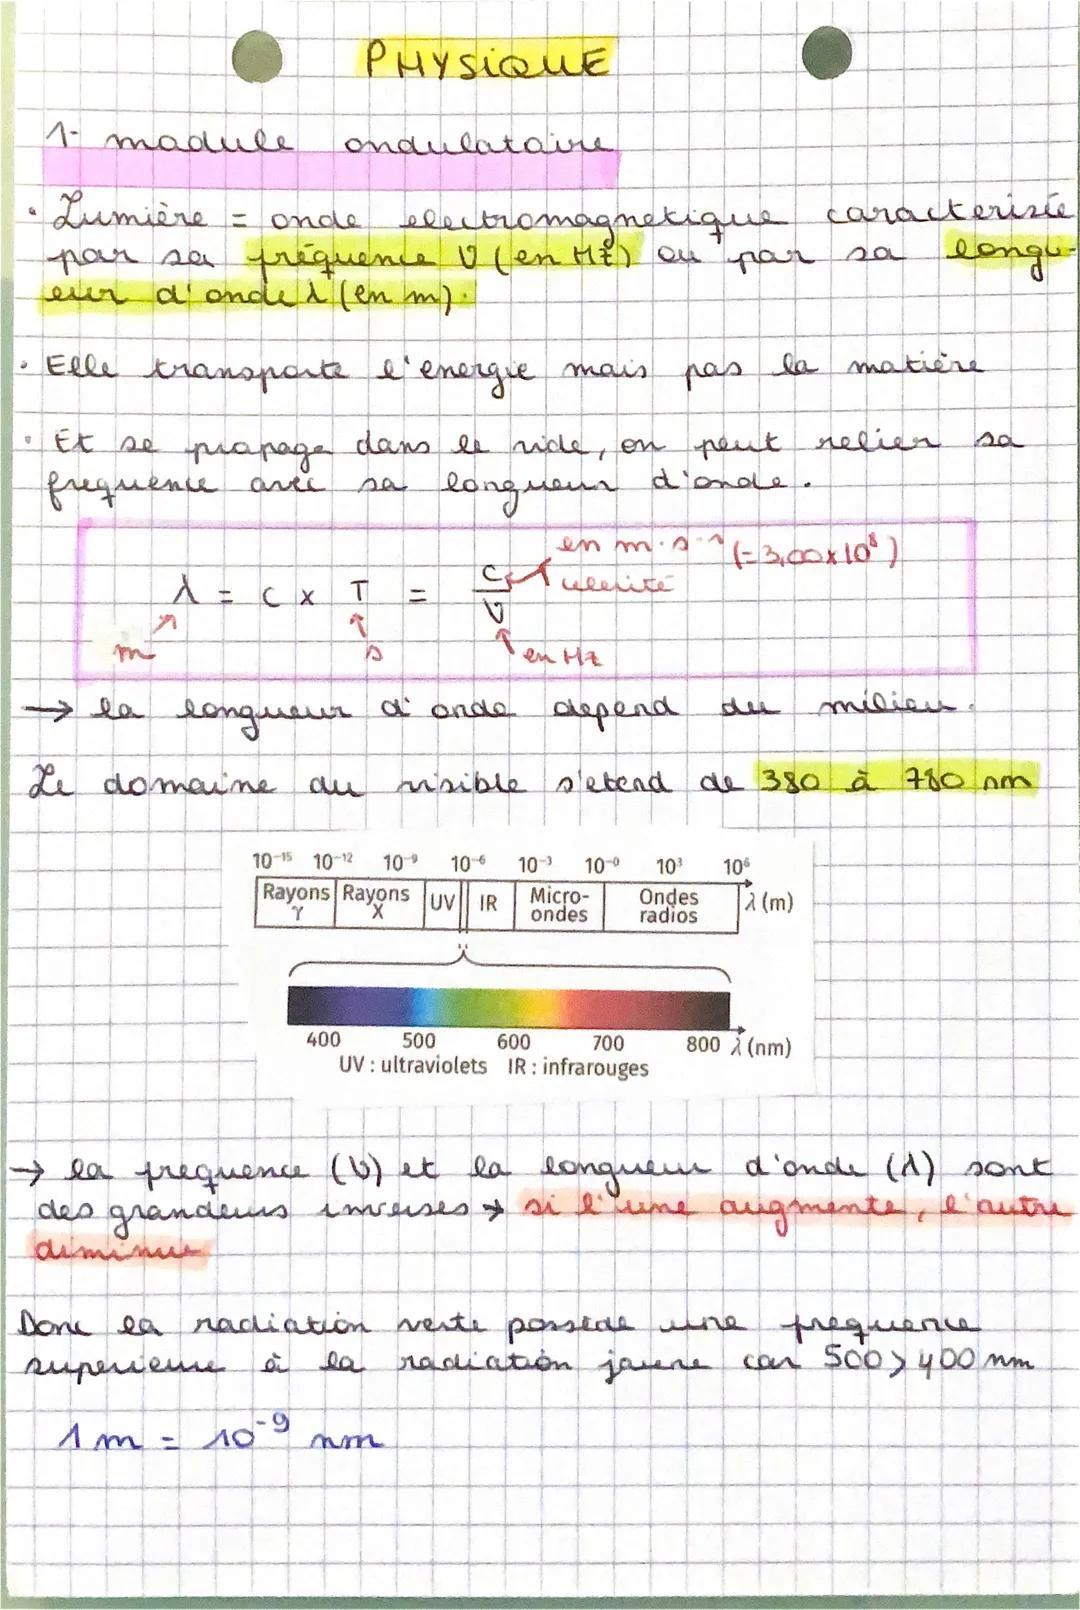 PHYSIQUE
1- module ondulatoire
· Lumière = onde electromagnetique caracterisée
par sa fréquence ν (en Hz) ou par sa longu-
eur d'onde λ (en m).
· Elle transporte l'energie mais pas la matière
· Et se propage dans le vide, on peut relier sa
frequence avec sa longueur d'onde.
en m.s⁻¹ (= 3,00x10⁸)
λ = c x T = c/ν
célérité
m
s
en Hz
→ la longueur d'onde depend du milieu.
Le domaine du visible s'etend de 380 à 780 nm
10⁻¹⁵ 10⁻¹² 10⁻⁹ 10⁻⁶ 10⁻³ 10⁻⁰ 10³ 10⁶
Rayons γ Rayons X UV IR Micro-ondes Ondes radios λ (m)
400 500 600 700 800 λ (nm)
UV : ultraviolets IR : infrarouges
→ la frequence (ν) et la longueur d'onde (λ) sont
des grandeurs inverses → si l'une augmente, l'autre
diminue
Donc la radiation verte possede une frequence
superieure à la radiation jaune car 500 > 400 nm
1 m = 10⁻⁹ nm